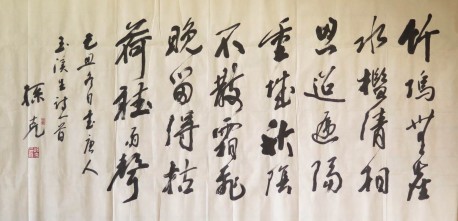 竹塢無塵
水檻清相
思迢遞隔
重城秋陰
不散霜飛
晚留得枯
荷聽雨聲
己丑冬日書唐人
玉溪生詩一首